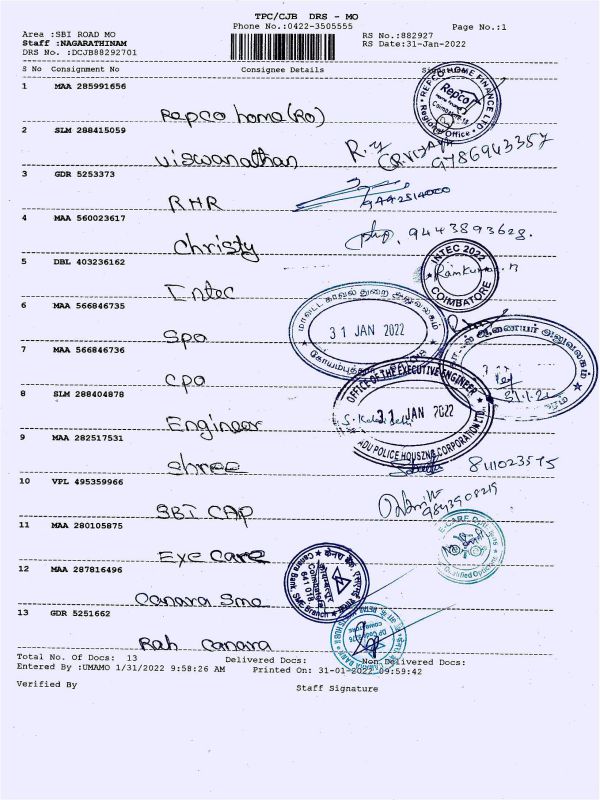 TPC/CJB DRS - MO
Phone No.:0422-3505555 Page No.:1
Area :SBI ROAD MO RS No.:882927
Staff :NAGARATHINAM RS Date:31-Jan-2022
DRS No. :DCJB88292701
S No Consignment No Consignee Details
1 MAA 285991656
Repco home(RO)
REPCO HOME FINANCE LTD
Repco
Regional Office
2 SLM 288415059
Viswanathan 9786943357
3 GDR 5253373
RHR 9442514000
4 MAA 560023617
Christy 9443893628.
5 DBL 403236162
Intec
INTEC 2022
Ramkumar
COIMBATORE
6 MAA 566846735
Spo
மாவட்ட காவல் துறை அலுவலகம்
31 JAN 2022
7 MAA 566846736
Cpo
ஆணையர் அலுவலகம்
8 SLM 288404878
Engineer
OFFICE OF THE EXECUTIVE ENGINEER
31 JAN 2022
POLICE HOUSING CORPORATION LTD
9 MAA 282517531
Shree
10 VPL 495359966
SBI CAP
11 MAA 280105875
Eye care
12 MAA 287816496
Canara Sme
Canara Bank, SME Branch
Coimbatore
641 018
13 GDR 5251662
Rah canara
Total No. Of Docs: 13 Delivered Docs: Non Delivered Docs:
Entered By :UMAMO 1/31/2022 9:58:26 AM Printed On: 31-01-2022 09:59:42
Verified By Staff Signature